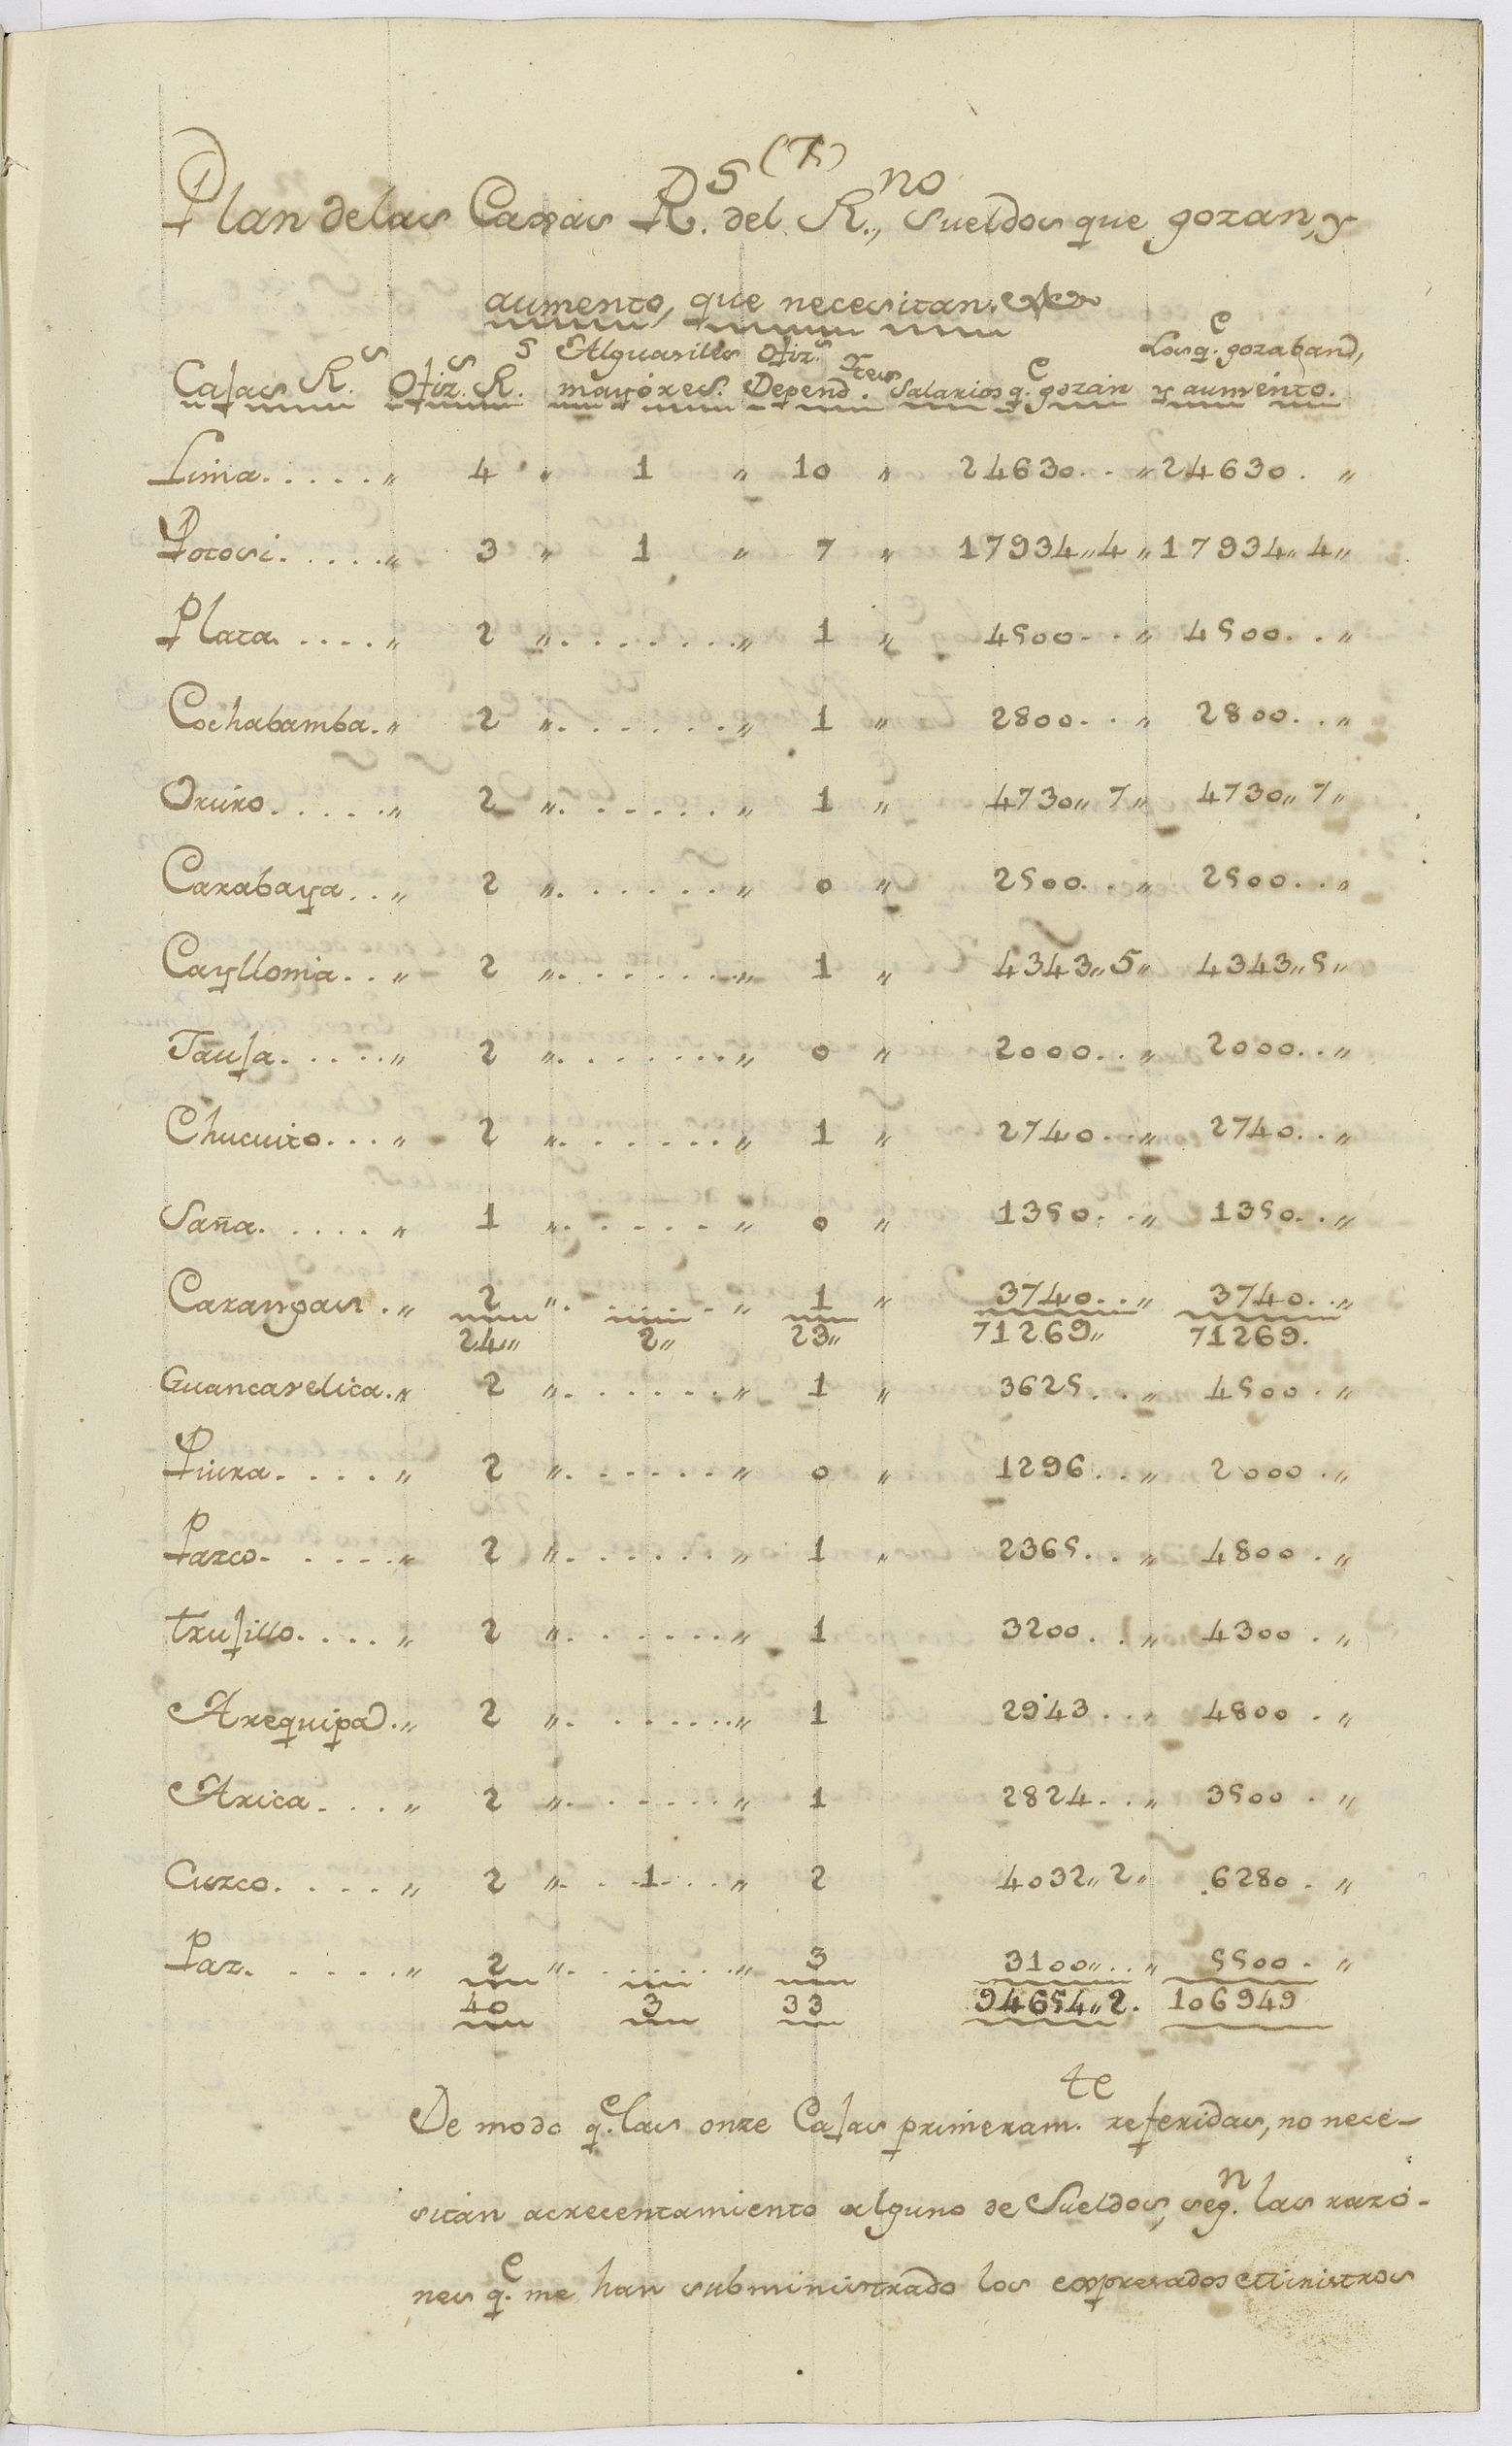 (7)
Plan de las Caxas R.s del R.no, Sueldos que gozan, y
aumento, que necesitan.
Cajas R.s Ofiz.s R.s Alguasiles mayores. Ofiz.s Depend.tes Salarios q.e gozan Los q.e gozaban, y aumento.
Lima. . . . . „ 4 „ 1 „ 10 „ 24630. . „ 24630. „
Potosi. . . . . „ 3 „ 1 „ 7 „ 17934„ 4 „ 17934„ 4„
Plata. . . . . „ 2 „. . . . . . . „ 1 „ 4500. . „ 4500. . „
Cochabamba. „ 2 „. . . . . . „ 1 „ 2800. . „ 2800. . „
Oruro. . . . . „ 2 „. . . . . . „ 1 „ 4730„ 7„ 4730„ 7„
Carabaya. . „ 2 „. . . . . . „ 0 „ 2500. . „ 2500. . „
Cayllonia. . „ 2 „. . . . . . . „ 1 „ 4343„ 5„ 4343„ 5„
Jauja. . . . . „ 2 „. . . . . . . „ 0 „ 2000. . „ 2000. . „
Chucuito. . . „ 2 „. . . . . . „ 1 „ 2740. . „ 2740. . „
Saña. . . . . „ 1 „. . . . . „ 0 „ 1350. . „ 1350. . „
Carangas. „ 2 „. . . . . . „ 1 „ 3740. . „ 3740. . „
24„ 2„ 23„ 71269„ 71269.
Guancavelica. „ 2 „. . . . . . „ 1 „ 3625. . „ 4500. „
Piura. . . . . „ 2 „. . . . . . „ 0 „ 1296. . „ 2000. „
Pazco. . . . . . „ 2 „. . . . . . „ 1 „ 2365. . „ 4800. „
trujillo. . . . „ 2 „. . . . . . „ 1 3200. . „ 4300. „
Arequipa. „ 2 „. . . . . . „ 1 2943. . „ 4800. „
Arica. . . . „ 2 „. . . . . . „ 1 2824. . „ 3500. „
Cuzco. . . . . „ 2 „. . 1. . . „ 2 4032„ 2„ 6280. „
Paz. . . . . . „ 2 „. . . . . . . „ 3 3100„. . „ 5500. „
40 3 33 94654„ 2. 106949
De modo q.e las onze Cajas primeram.te referidas, no nece-
sitan acrecentamiento alguno de Sueldos, seg.n las razo-
nes q.e me han subministrado los expresados Ministros